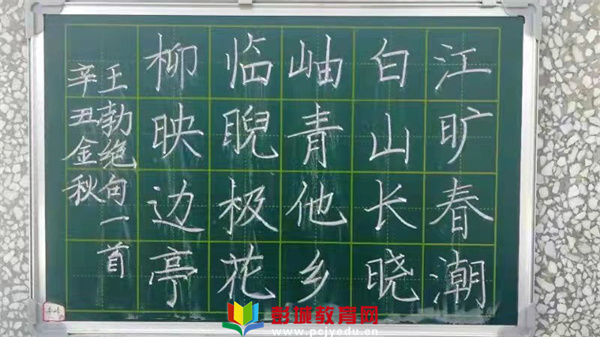 江旷春潮
白山长晓
岫青他乡
临睨极花
柳映边亭
王勃绝句一首
辛丑金秋
彭城教育网
www.pcjyedu.cn